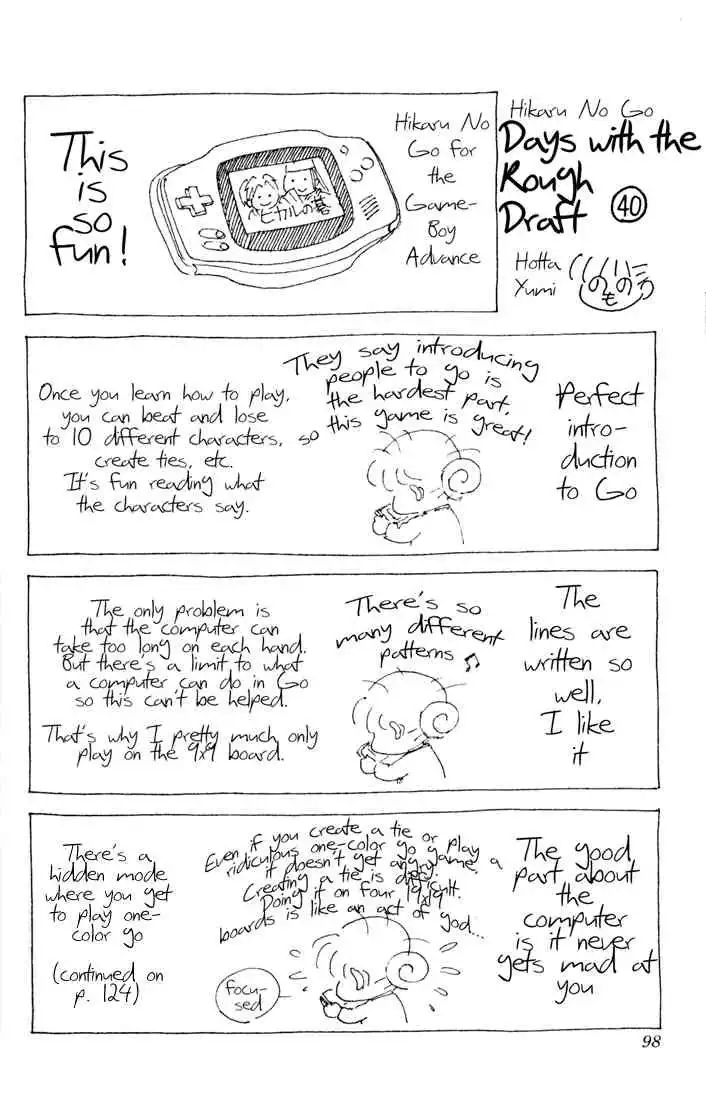 Hikaru No Go
Days with the
Rough
Draft 40
Hotta
Yumi
Hikaru No
Go for
the
Game-
Boy
Advance
ヒカルの碁
This
is
so
fun!
Perfect
intro-
duction
to Go
They say introducing
people to go is
the hardest part,
so this game is great!
Once you learn how to play,
you can beat and lose
to 10 different characters,
create ties, etc.
It's fun reading what
the characters say.
The
lines are
written so
well,
I like
it
There's so
many different
patterns ♫
The only problem is
that the computer can
take too long on each hand.
But there's a limit to what
a computer can do in Go
so this can't be helped.
That's why I pretty much only
play on the 9x9 board.
The good
part about
the
computer
is it never
gets mad at
you
Even if you create a tie or play a
ridiculous one-color go game,
it doesn't get angry.
Creating a tie is difficult.
Doing it on four 19x19
boards is like an act of god...
focu-
sed
There's a
hidden mode
where you get
to play one-
color go
(continued on
p. 124)
98